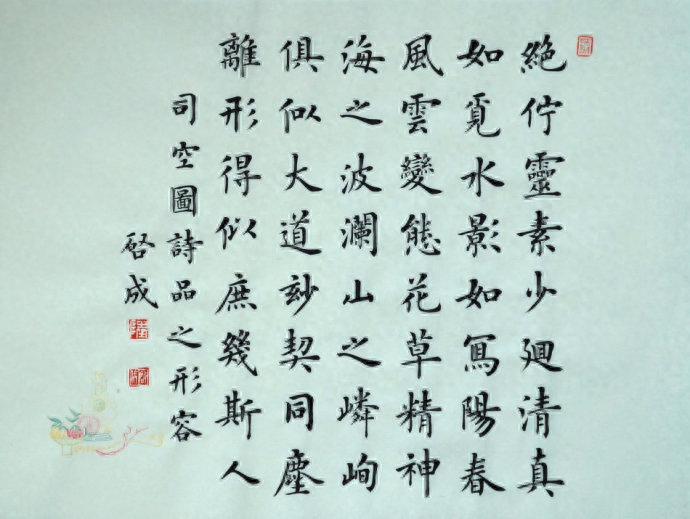 絕佇靈素少迴清真
如覓水影如寫陽春
風雲變態花草精神
海之波瀾山之嶙峋
俱似大道妙契同塵
離形得似庶幾斯人
司空圖詩品之形容
啓成